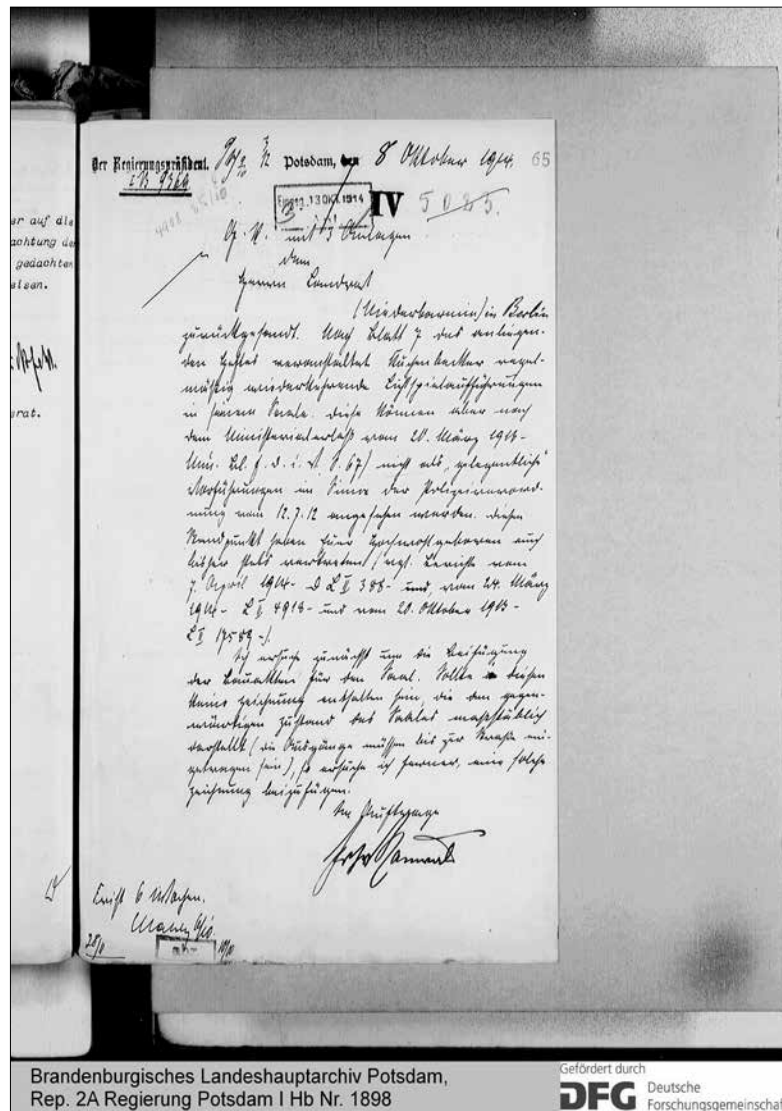 Der Regierungspräsident. Potsdam, den 8 Oktober 1914. 65
I B 9366
Eingeg. 13 OKT. 1914 IV 5025.
4908 25/10
er auf die
achtung de
gedachten
eisen.
erat.
G. R. mit 3 Anlagen
dem
Herrn Landrat
(Niederbarnim) in Berlin
zurückgesandt. Nach Blatt 7 des anliegen-
den Heftes veranstaltet Kuchenbecker regel-
mäßig wiederkehrende Lichtspielaufführungen
in seinem Saale. Diese können aber nach
dem Ministerialerlaß vom 20. März 1914 -
Min. Bl. f. d. i. V. S. 67) nicht als „gelegentliche"
Vorführungen im Sinne der Polizeiverord-
nung vom 12.7.12 angesehen werden. Diesen
Standpunkt haben Euer Hochwohlgeboren auch
bisher stets vertreten (vgl. Berichte vom
7. April 1914 - D L II 388 - und vom 24. März
1914 - L II 4918 - und vom 20. Oktober 1913 -
L II 17589 -).
Ich ersuche zunächst um die Beifügung
der Bauakten für den Saal. Sollte in diesen
keine Zeichnung enthalten sein, die den gegen-
wärtigen Zustand des Saales maßstäblich
darstellt (die Ausgänge müssen bis zur Straße ein-
getragen sein), so ersuche ich ferner, eine solche
Zeichnung beizufügen.
Im Auftrage
Frist 6 Wochen.
Brandenburgisches Landeshauptarchiv Potsdam,
Rep. 2A Regierung Potsdam I Hb Nr. 1898
Gefördert durch
DFG Deutsche
Forschungsgemeinschaft